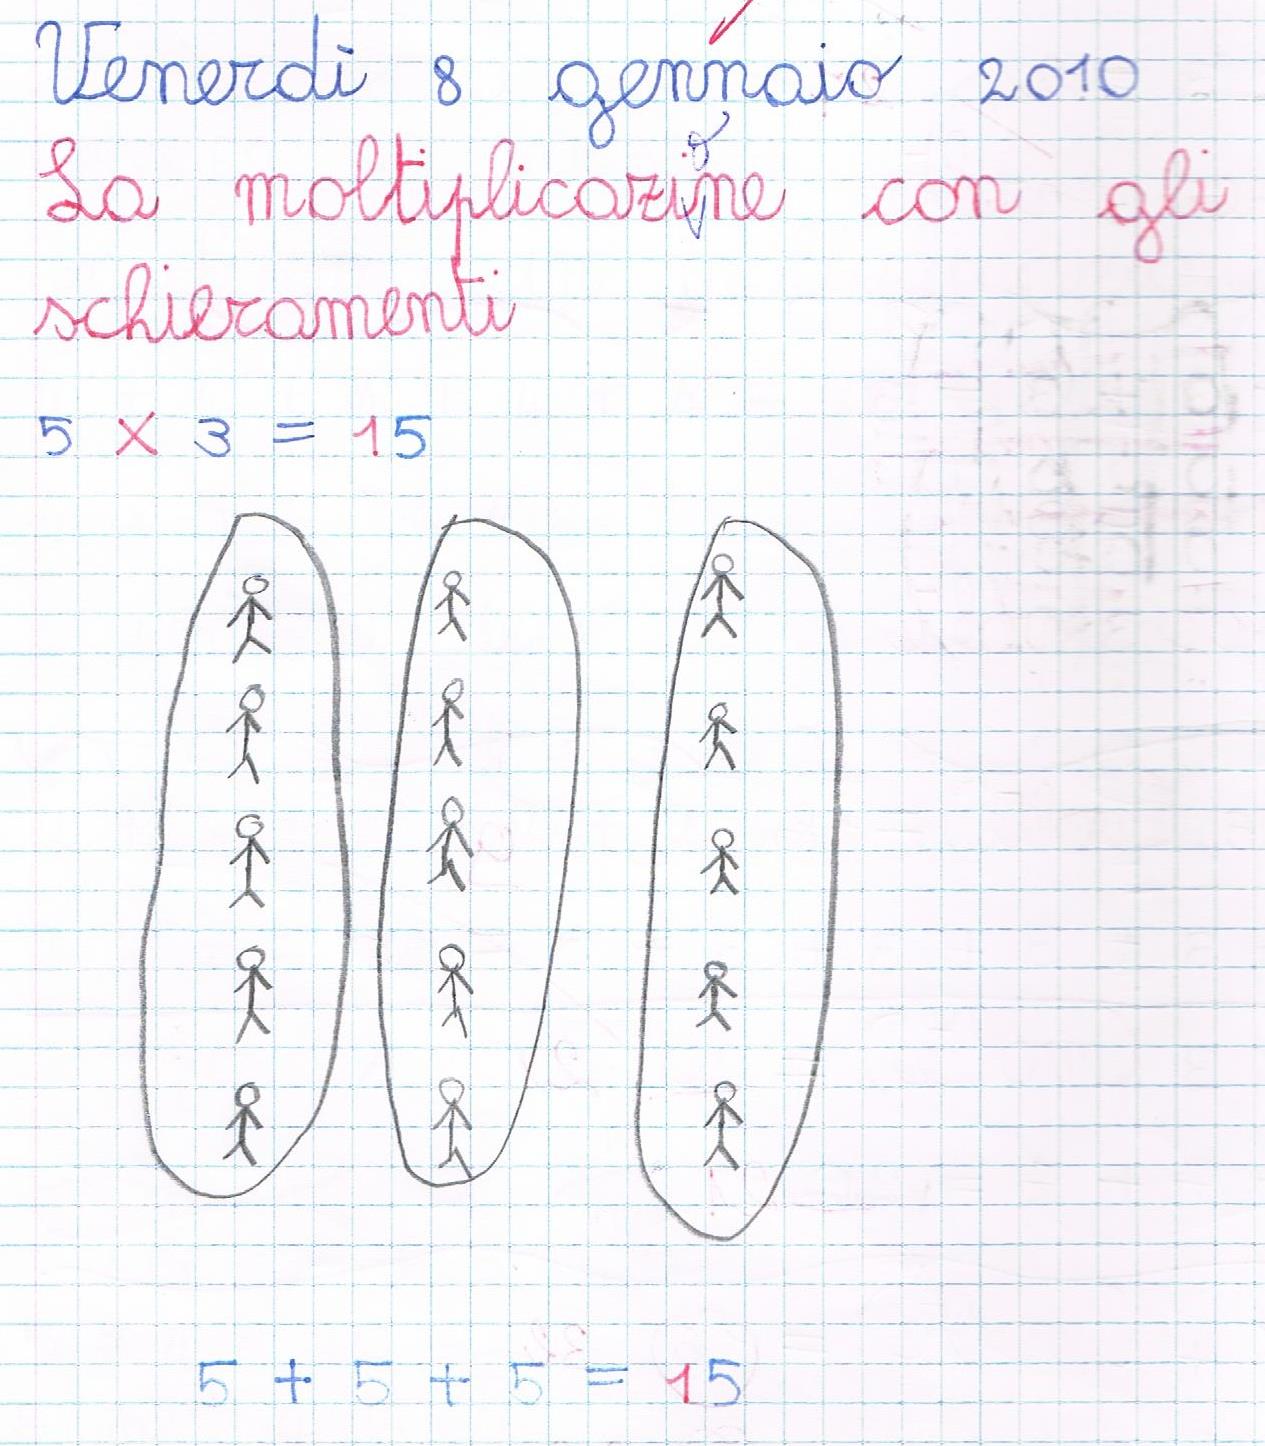 Venerdì 8 gennaio 2010
La moltiplicazione con gli
schieramenti
5 x 3 = 15
5 + 5 + 5 = 15